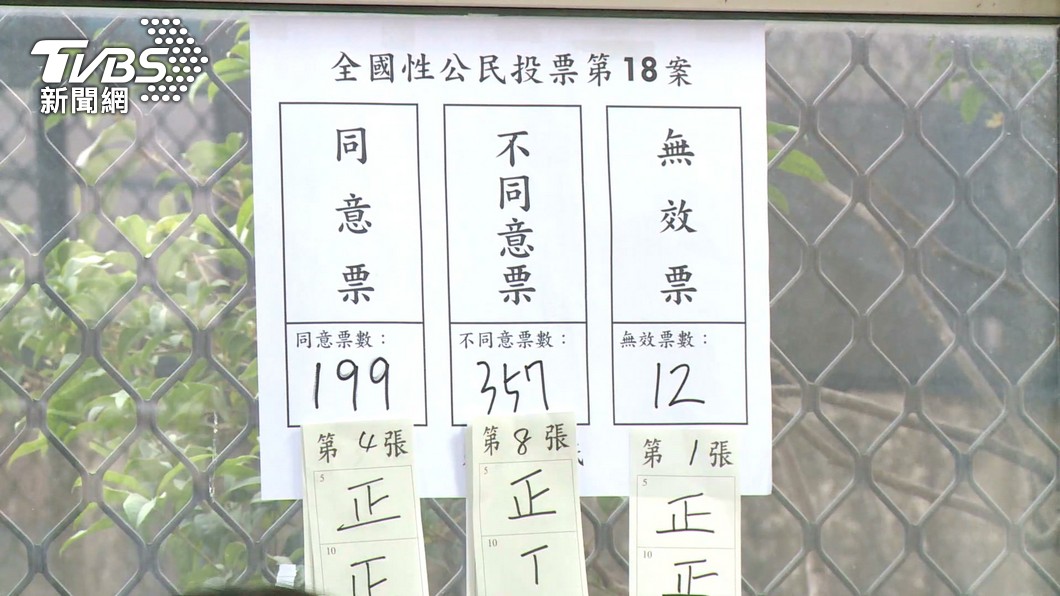 TVBS
新聞網
全國性公民投票第18案
同意票
不同意票
無效票
同意票數：
不同意票數：
無效票數：
199
357
12
第4張
第8張
第1張
5
正
5
正
5
正
10
正
10
丅
10
正